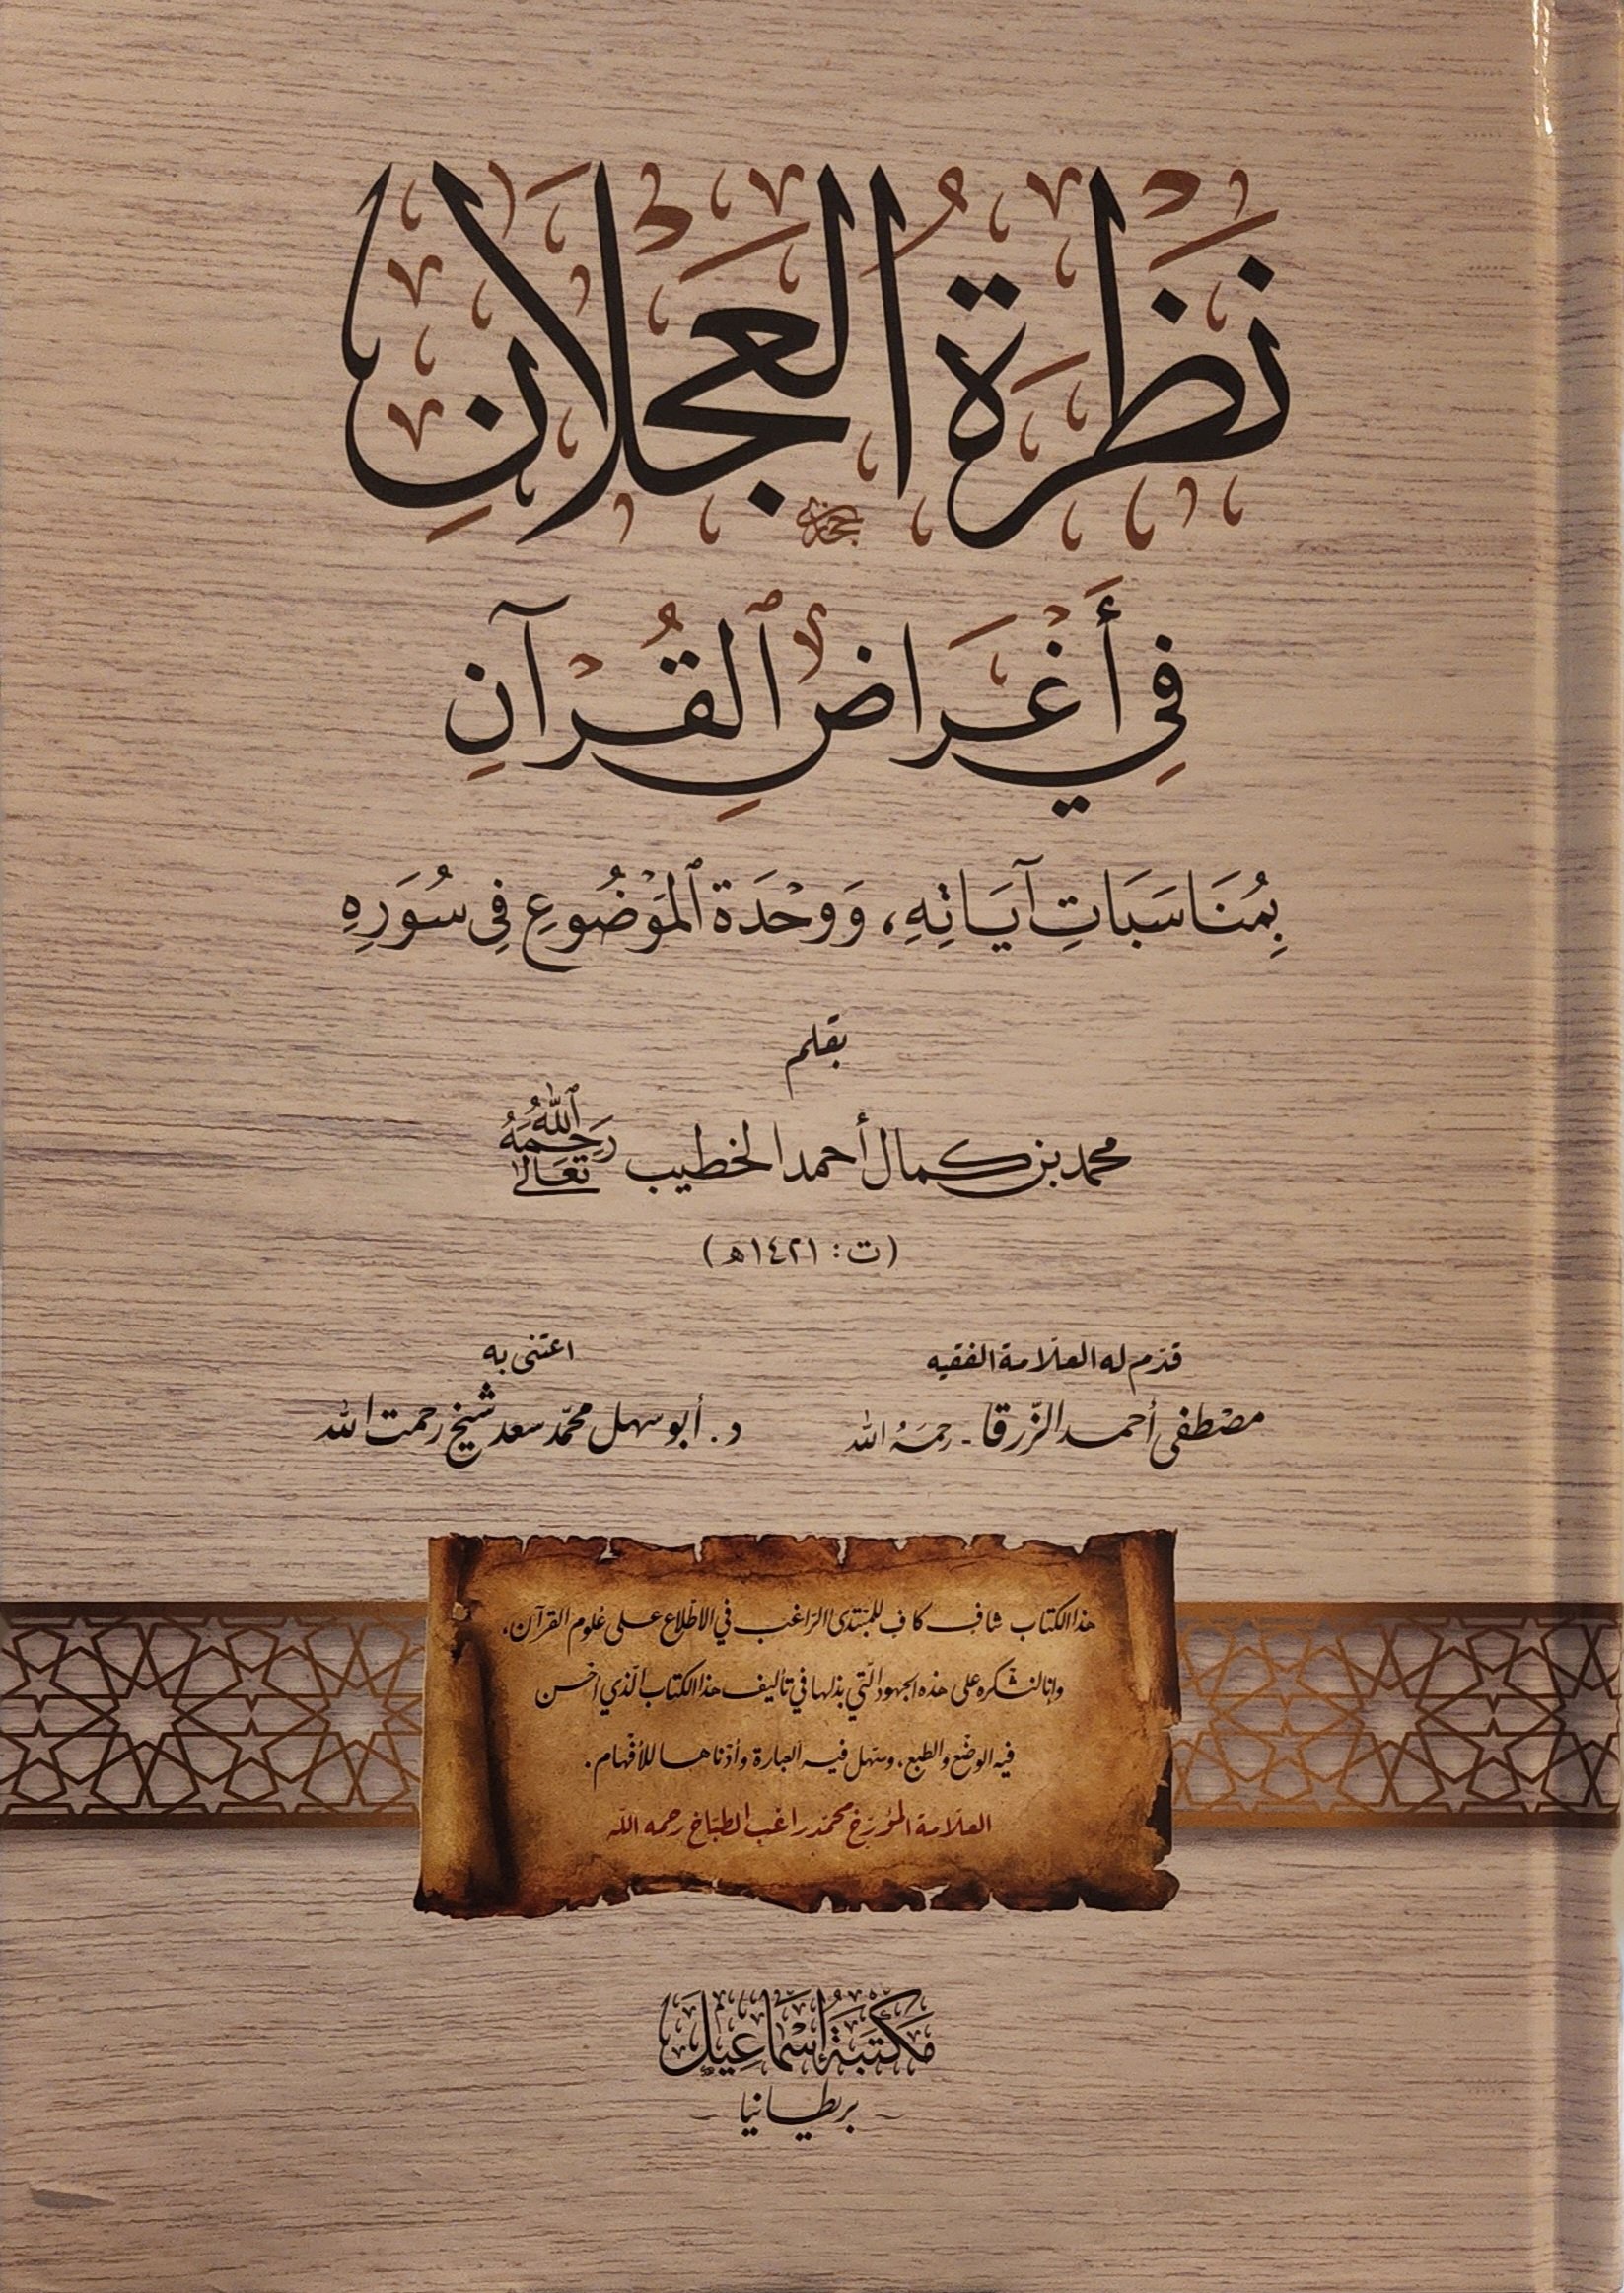 نَظْرَةُ العَجْلَانِ
فِي أَغْرَاضِ ٱلْقُرْآنِ
بِمُنَاسَبَاتِ آيَاتِهِ، وَوَحْدَة ٱلمَوْضُوعِ فِي سُوَرِهِ
بقلم
محمد بن كمال أحمد الخطيب رَحِمَهُ ٱللَّهُ تَعَالَىٰ
(ت: ١٤٢١هـ)
قدّم له العلّامة الفقيه
مصْطفى أحمد الزّرقا - رحمَهُ الله
اعتنى به
د. أبو سهل محمّد سعد شيخ رحمت الله
هذا الكتاب شاف كاف للمبْتدئ الرّاغب في الاطّلاع على عُلوم القرآن،
وإنّا لنشْكره على هذه الجهود الّتي بذلها في تأليف هذا الكتاب الّذي أحْسن
فيه الوضْع والطبع، وسهّل فيه العبارة وأدْناها للأفْهام.
العلّامة المُؤرّخ محمّد راغب الطبّاخ رحمه الله
مَكْتَبَةُ إِسْمَاعِيل
- بريطانيا -